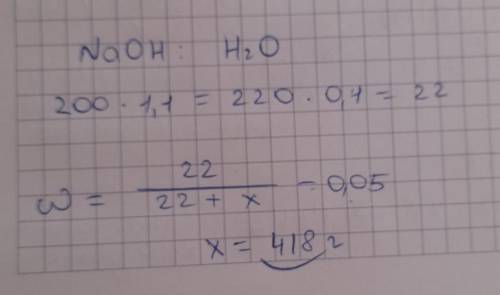 NaOH: H₂O
200 · 1,1 = 220 · 0,1 = 22
ω = 22 / (22 + x) = 0,05
x = 418 г